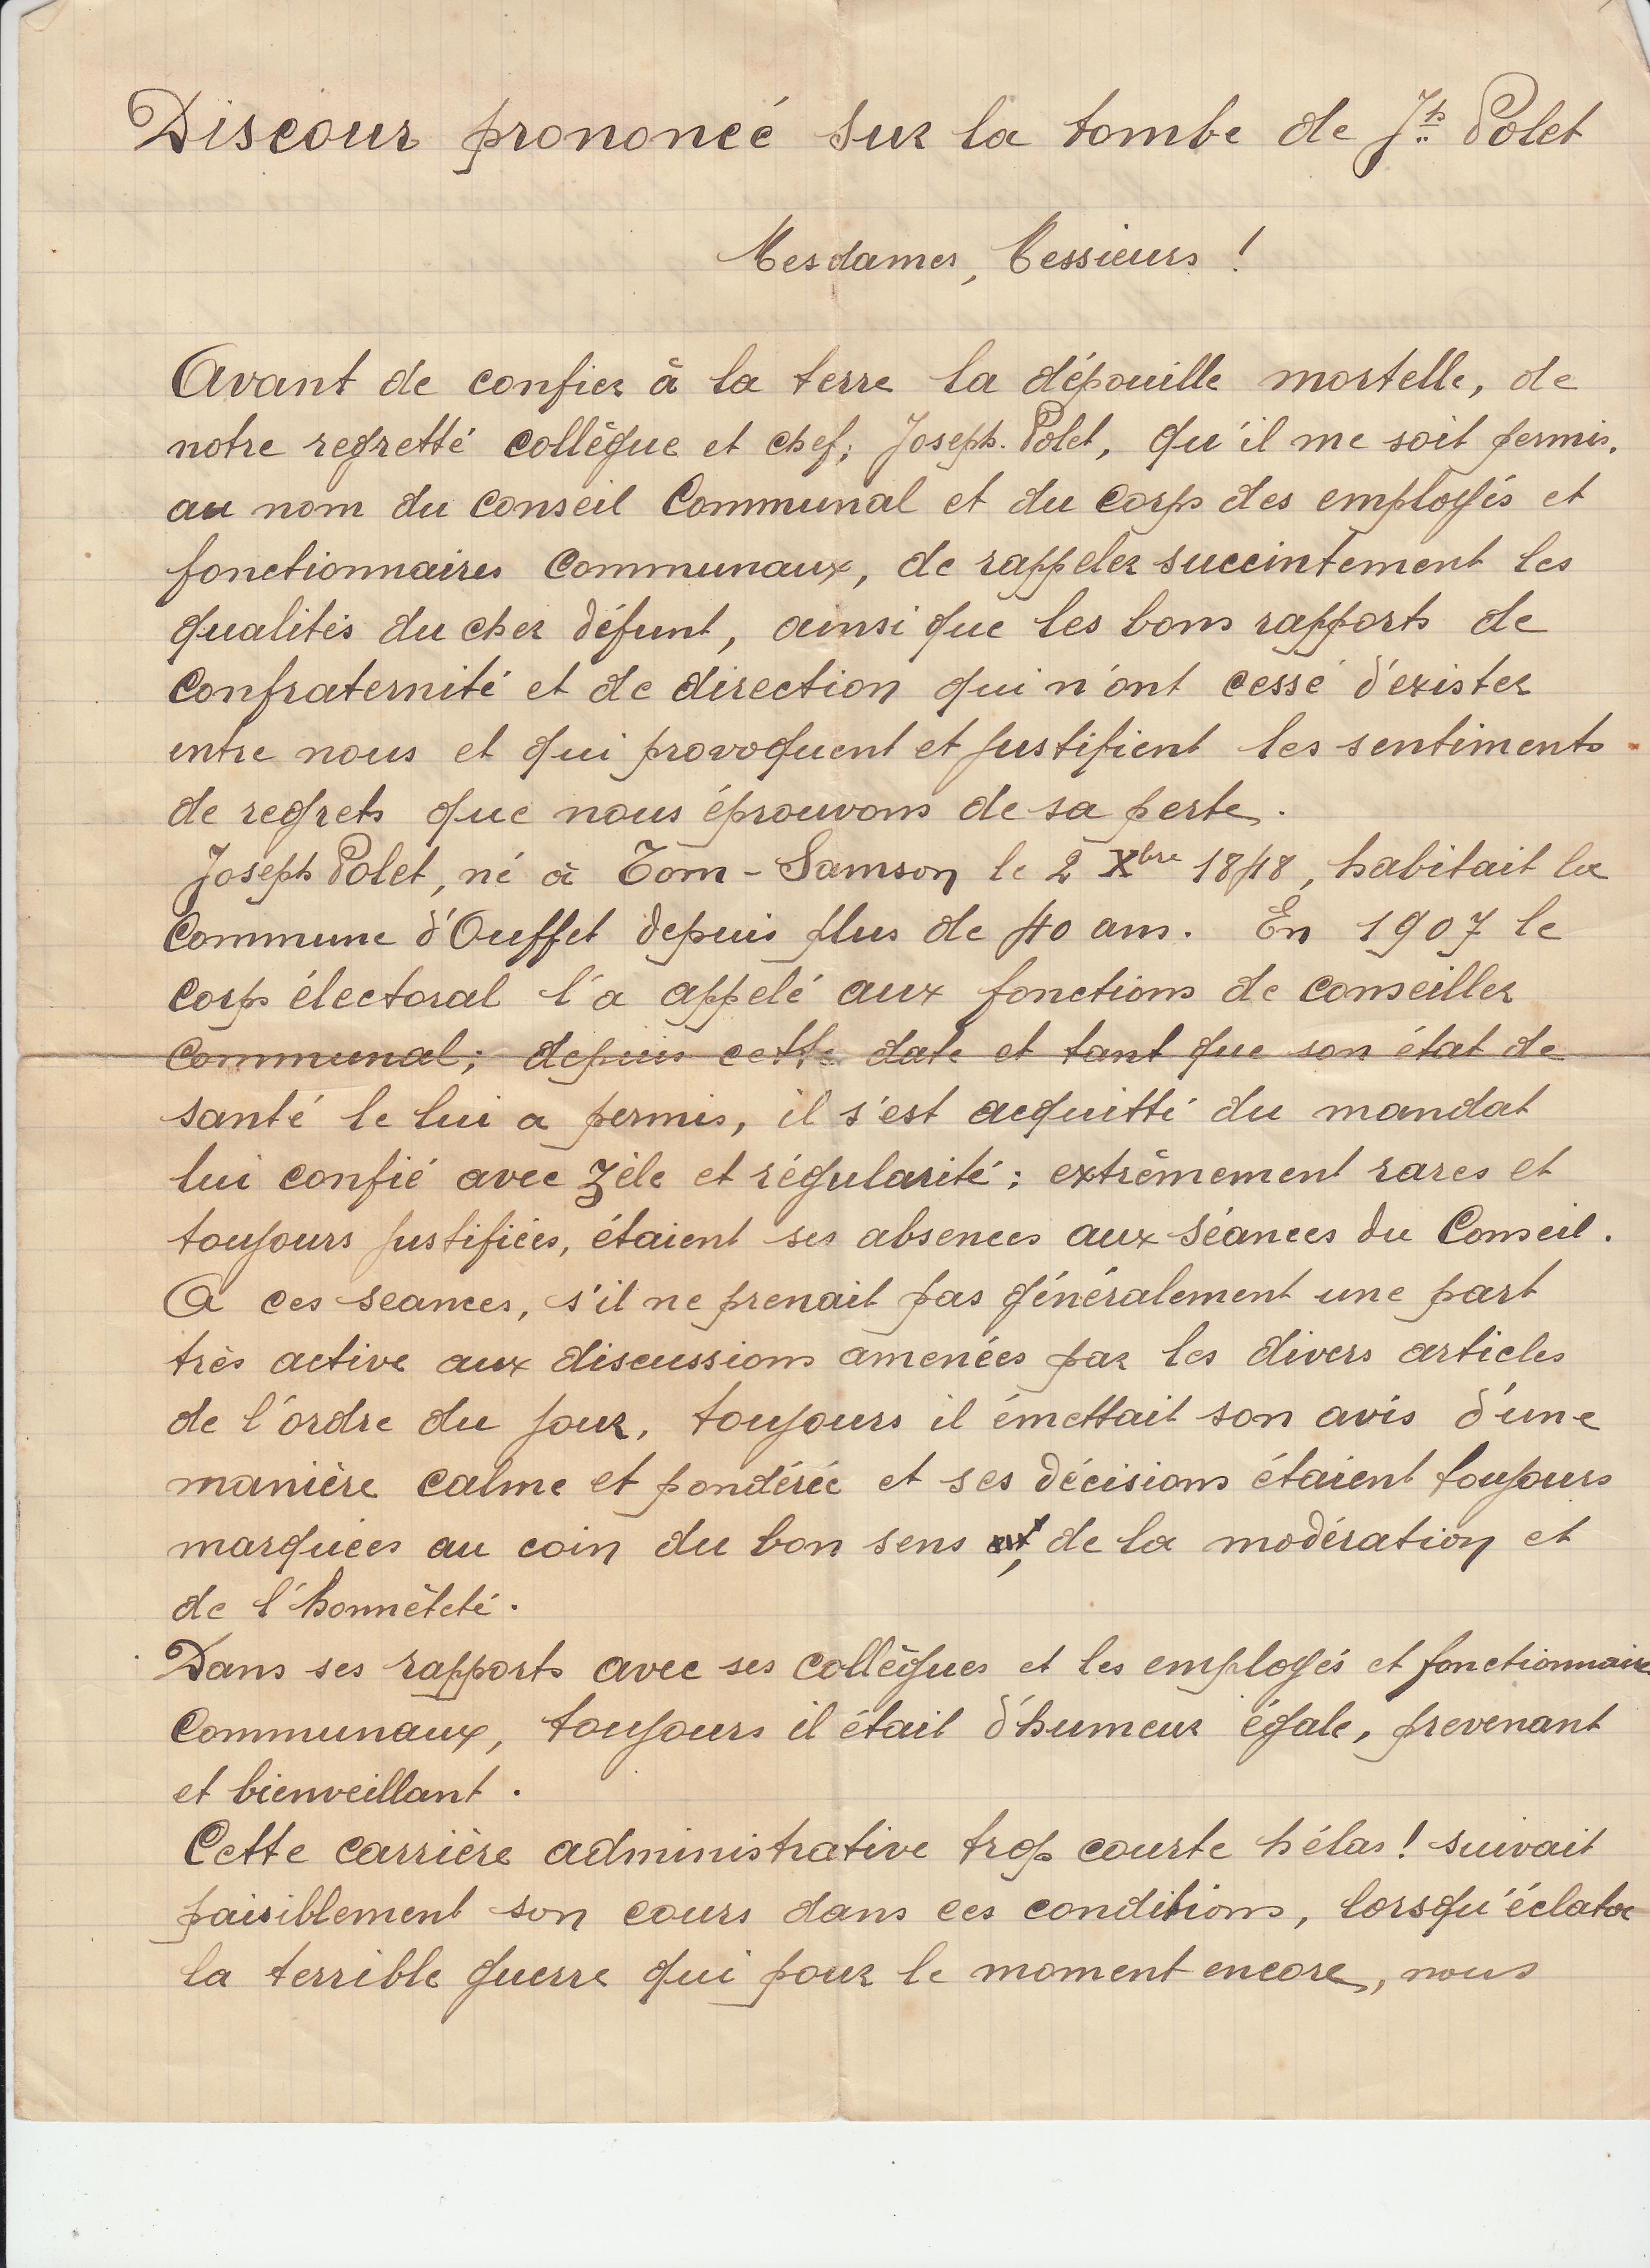 Discour prononcé sur la tombe de Jph Polet
Mesdames, Messieurs !
Avant de confier à la terre la dépouille mortelle, de
notre regretté collègue et chef, Joseph Polet, qu'il me soit permis,
au nom du conseil Communal et du corps des employés et
fonctionnaires Communaux, de rappeler succintement les
qualités du cher défunt, ainsi que les bons rapports de
Confraternité et de direction qui n'ont cessé d'exister
entre nous et qui provoquent et justifient les sentiments
de regrets que nous éprouvons de sa perte.
Joseph Polet, né à Tom-Samson le 2 Xbre 1848, habitait la
Commune d'Ouffet depuis plus de 40 ans. En 1907 le
Corps électoral l'a appelé aux fonctions de conseiller
Communal; depuis cette date et tant que son état de
santé le lui a permis, il s'est acquitté du mandat
lui confié avec zèle et régularité; extrêmement rares et
toujours justifiées, étaient ses absences aux séances du Conseil.
A ces seances, s'il ne prenait pas généralement une part
très active aux discussions amenées par les divers articles
de l'ordre du jour, toujours il émettait son avis d'une
manière calme et pondérée et ses décisions étaient toujours
marquées au coin du bon sens, de la modération et
de l'honnêteté.
Dans ses rapports avec ses collègues et les employés et fonctionnaire
Communaux, toujours il était d'humeur égale, prevenant
et bienveillant.
Cette carrière administrative trop courte hélas ! suivait
paisiblement son cours dans ces conditions, lorsqu'éclata
la terrible guerre qui pour le moment encore, nous